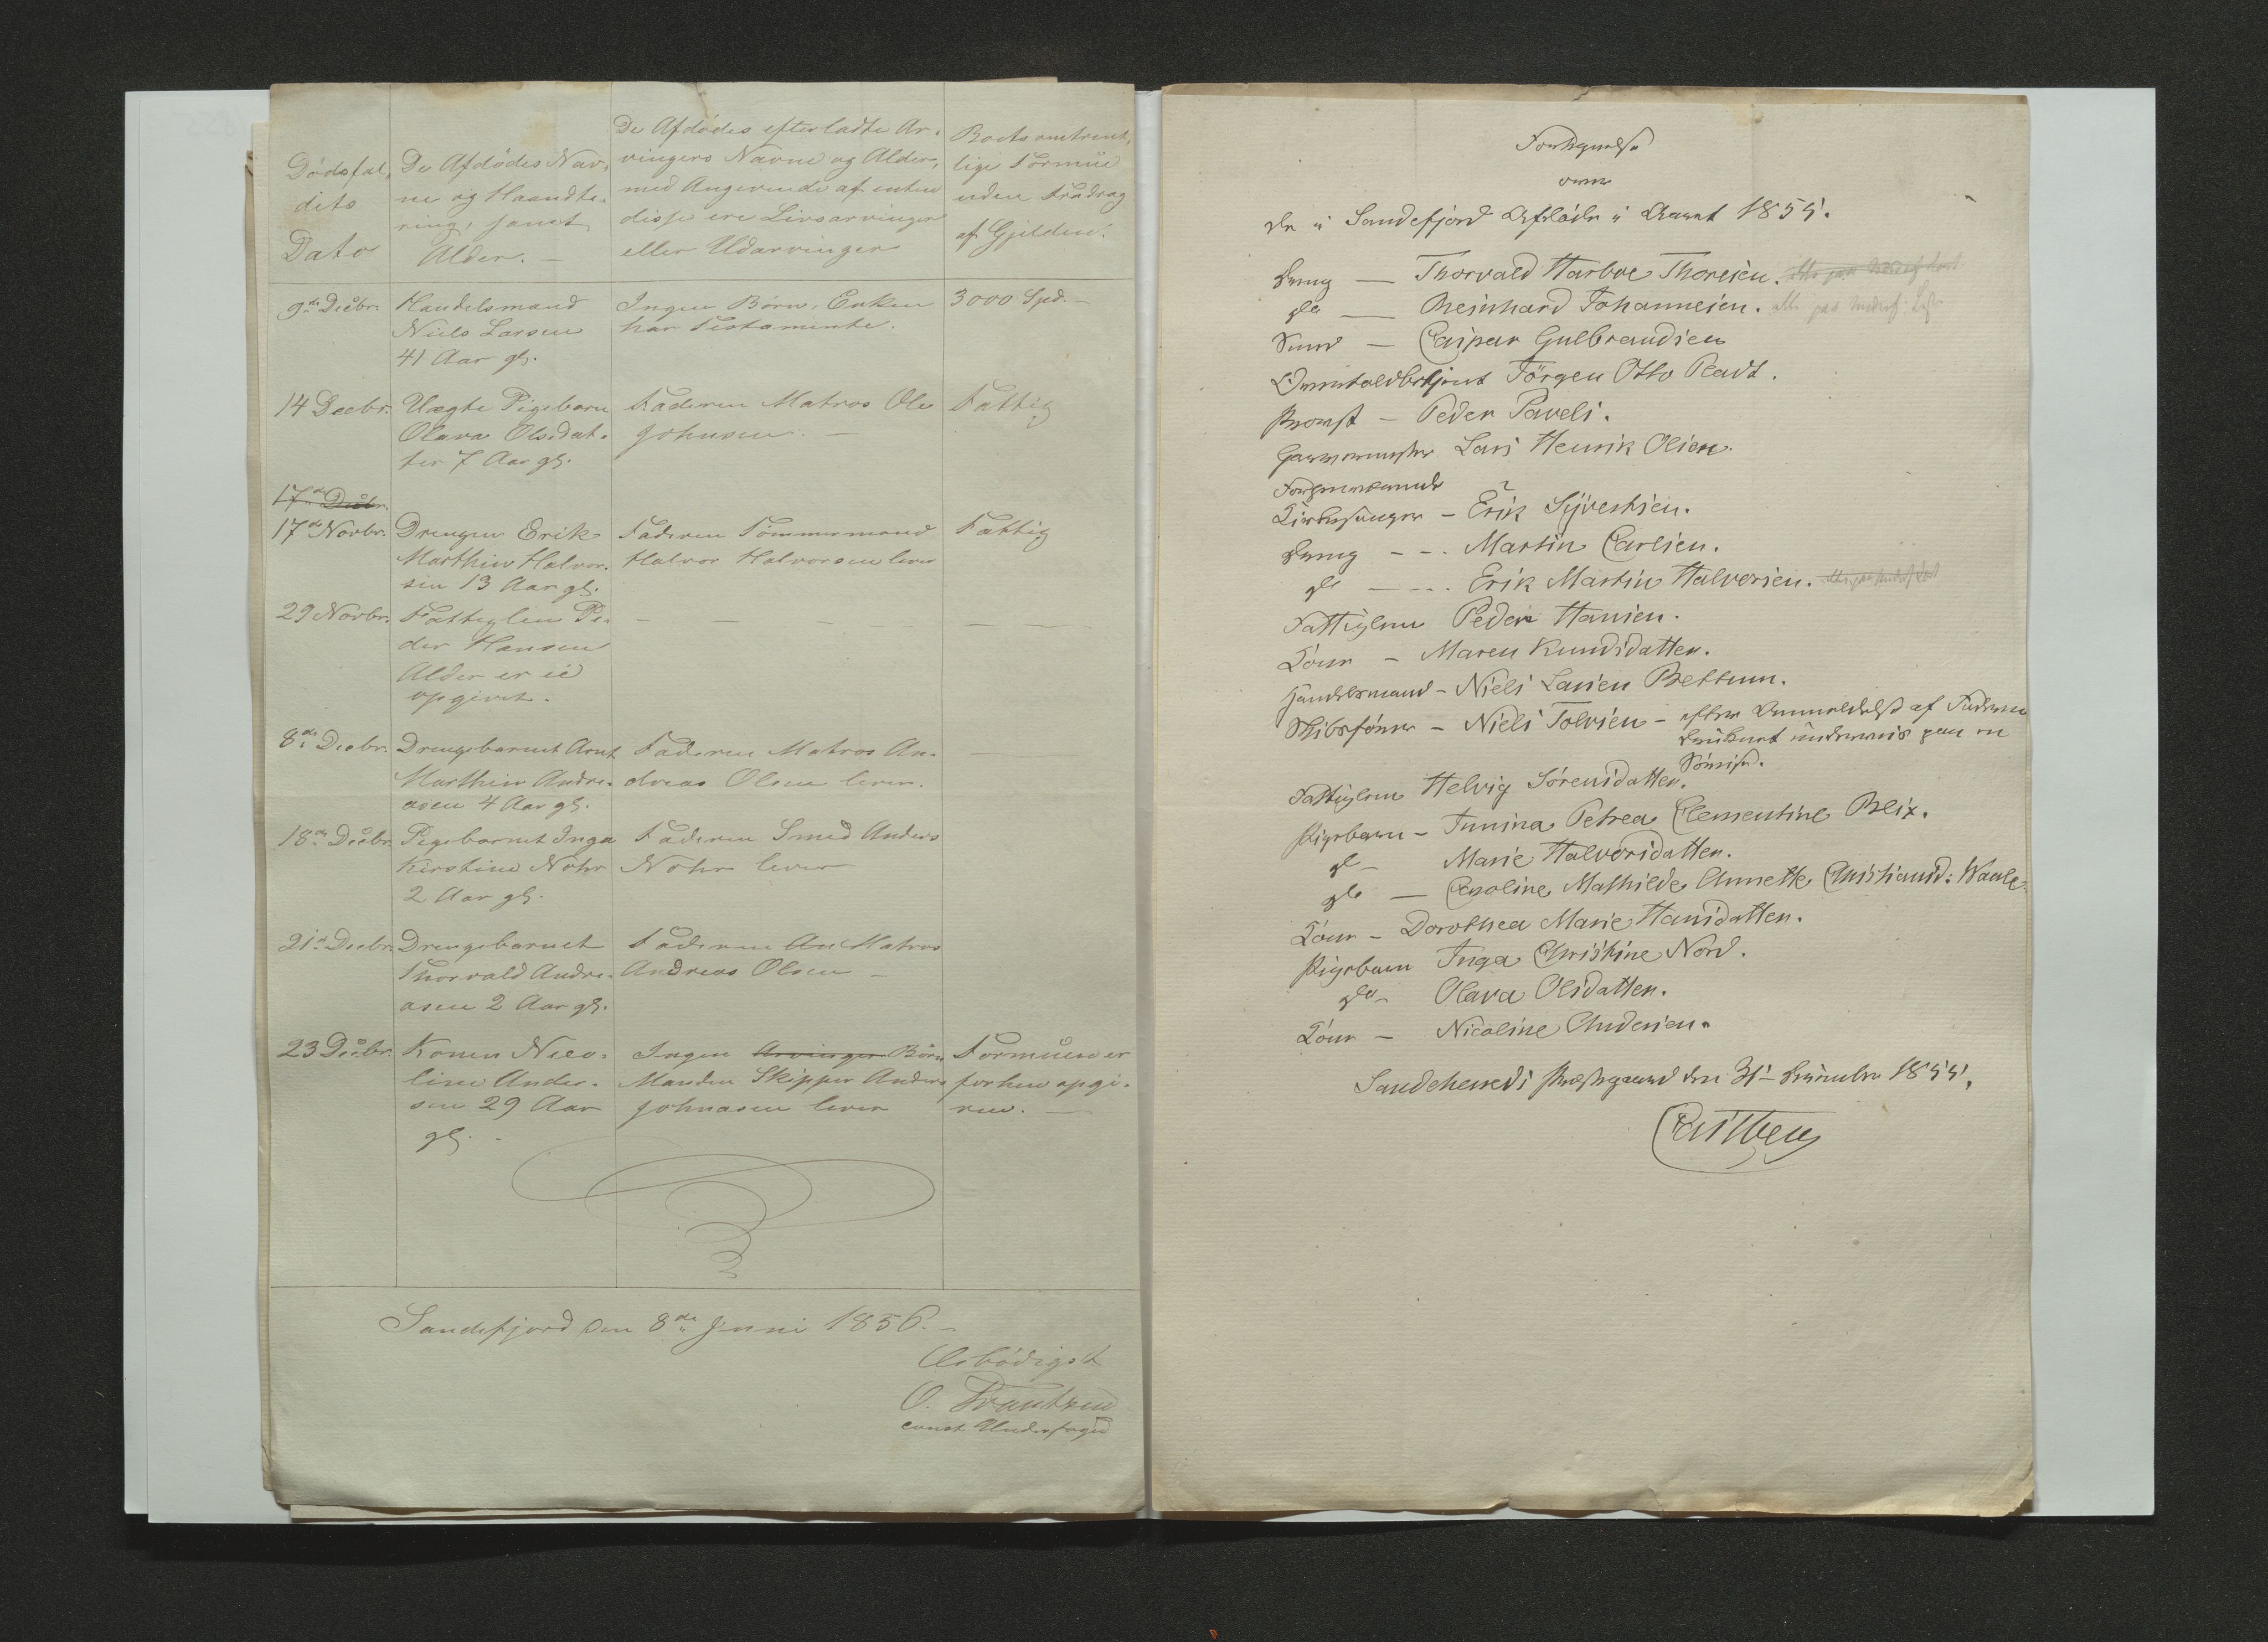 Dödsfal,
dets
Dato
De Afdödes Nav,
ne og Haandte.
ring, samt
Alder. —
De Afdödes efterladte Ar.
vingers Navne og Alder,
med Angivende af enten
disse ere Livsarvinger
eller Udarvinger
Boets omtrent,
lige Formue
uden Fradrag
af Gjelden.
9de Decbr.
Handelsmand
Niels Larsen
41 Aar gl.
Ingen Börn. Enken
har Testamente.
3000 Spd. —
14 Decbr.
Uægte Pigebarn
Olava Olsdat-
ter 7 Aar gl.
Faderen Matros Ole
Johnsen. —
Fattig
17de Decbr.
17de Novbr.
Drengen Erik
Marthin Halvor.
sen 13 Aar gl.
Faderen Tömmermand
Halvor Halvorsen lever
Fattig
29 Novbr.
Fattiglem Pe-
der Hansen
Alder er ei
opgivet.
— — — — — —
8de Decbr.
Drengebarnet Arnt
Marthin Andre-
asen 4 Aar gl.
Faderen Matros An-
dreas Olsen lever.
—
18de Decbr.
Pigebarnet Inga
Kirstine Nohr
2 Aar gl.
Faderen Smed Anders
Nohr lever
21de Decbr.
Drengebarnet
Thorvald Andre-
asen 2 Aar gl.
Faderen An Matros
Andreas Olsen —
23 Decbr.
Konen Nico-
line Ander-
sen 29 Aar
gl. -
Ingen Arvinger Börn
Manden Skipper Anders
Johnasen lever
Formuen er
forhen opgi-
ven. —
Sandefjord den 8de Juni 1856. —
Ærbödigst
O. Frantzen
const Underfoged
Fortegnelse
over
de i Sandefjord Afdöde i Aaret 1855.
Dreng — Thorvald Harboe Thoresen.
do — Reinhard Johannesen.
Smed — Caspar Gulbrandsen
Jörgen Otto Pladt.
Provst — Peder Pavels.
Garvermester Lars Henrik Olsen.
Forhenværende
Kirkesanger — Erik Syvertsen.
Dreng - - - Martin Carlsen.
do - - - Erik Martin Halvorsen.
Fattiglem Peder Hansen.
Kone — Maren Knudsdatter.
Handelsmand — Niels Larsen Bettum.
Skibsförer — Niels Tolvsen — efter Anmeldelse af Faderen
druknet underveis paa en
Sömise.
Fattiglem Helvig Sörensdatter.
Pigebarn — Junina Petrea Clementine Blix.
do — Marie Halvorsdatter.
do — Caroline Mathilde Annette Christiansd: Waale
Kone — Dorothea Marie Hansdatter.
Pigebarn Inga Christine Nord.
do — Olava Olsdatter.
Kone — Nicoline Andersen.
Sandeherreds Præstegaard den 31te December 1855.